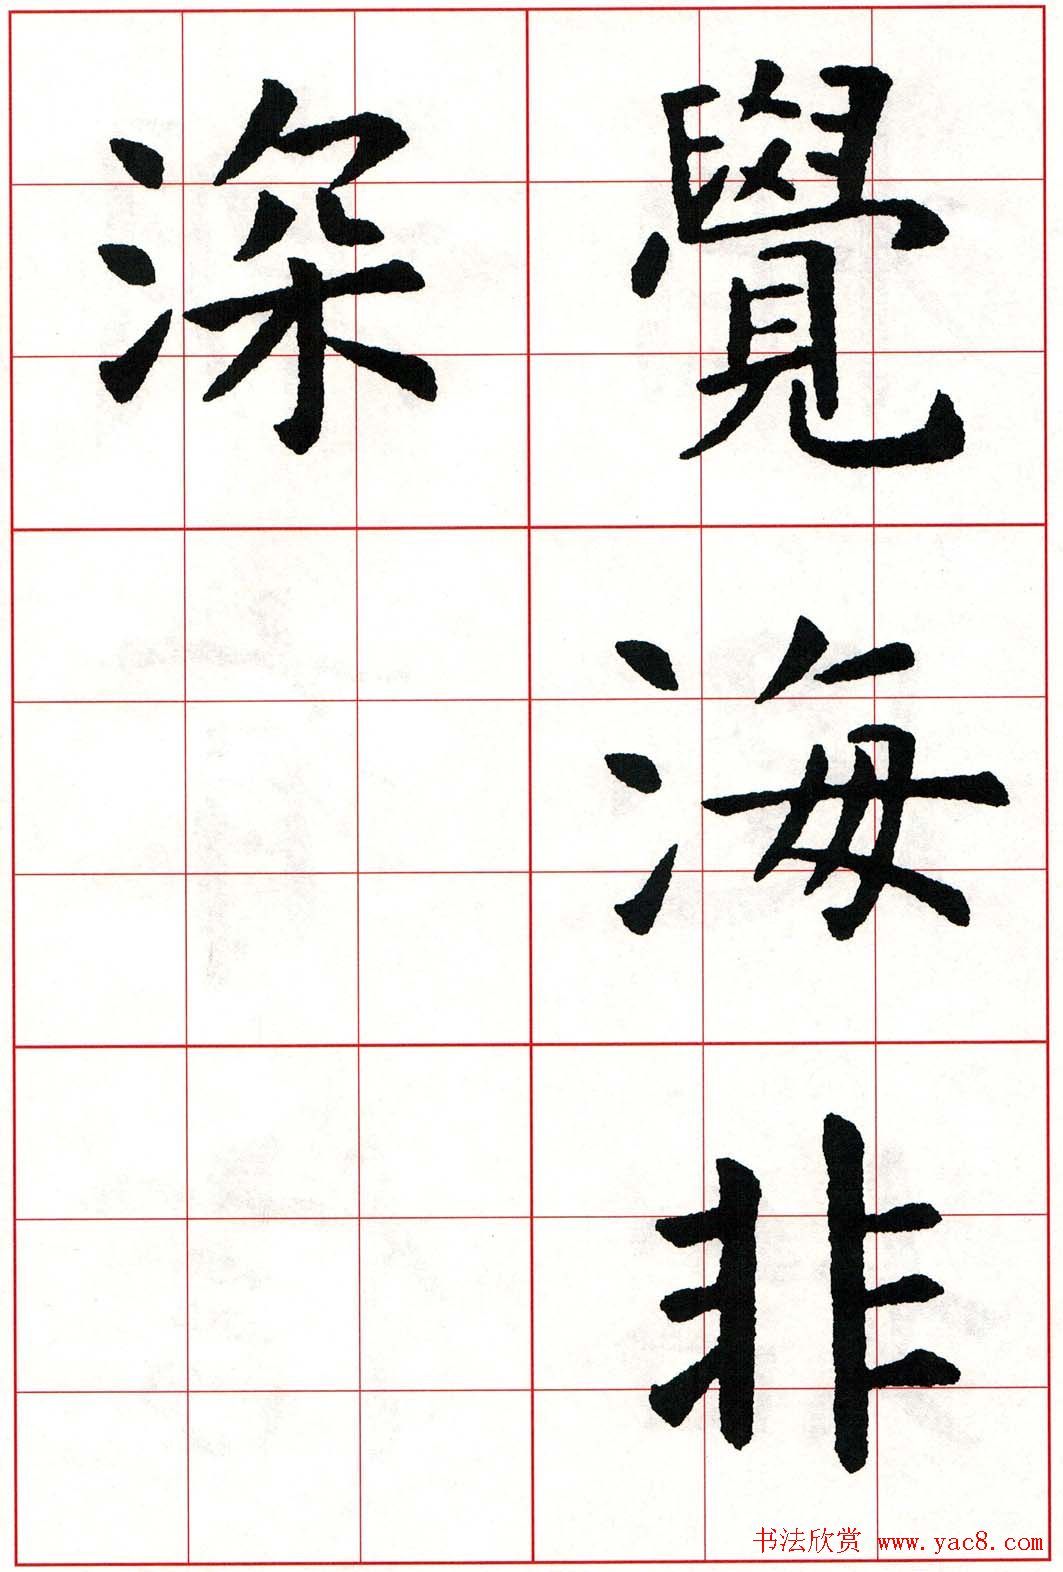 覺海非
深
书法欣赏 www.yac8.com